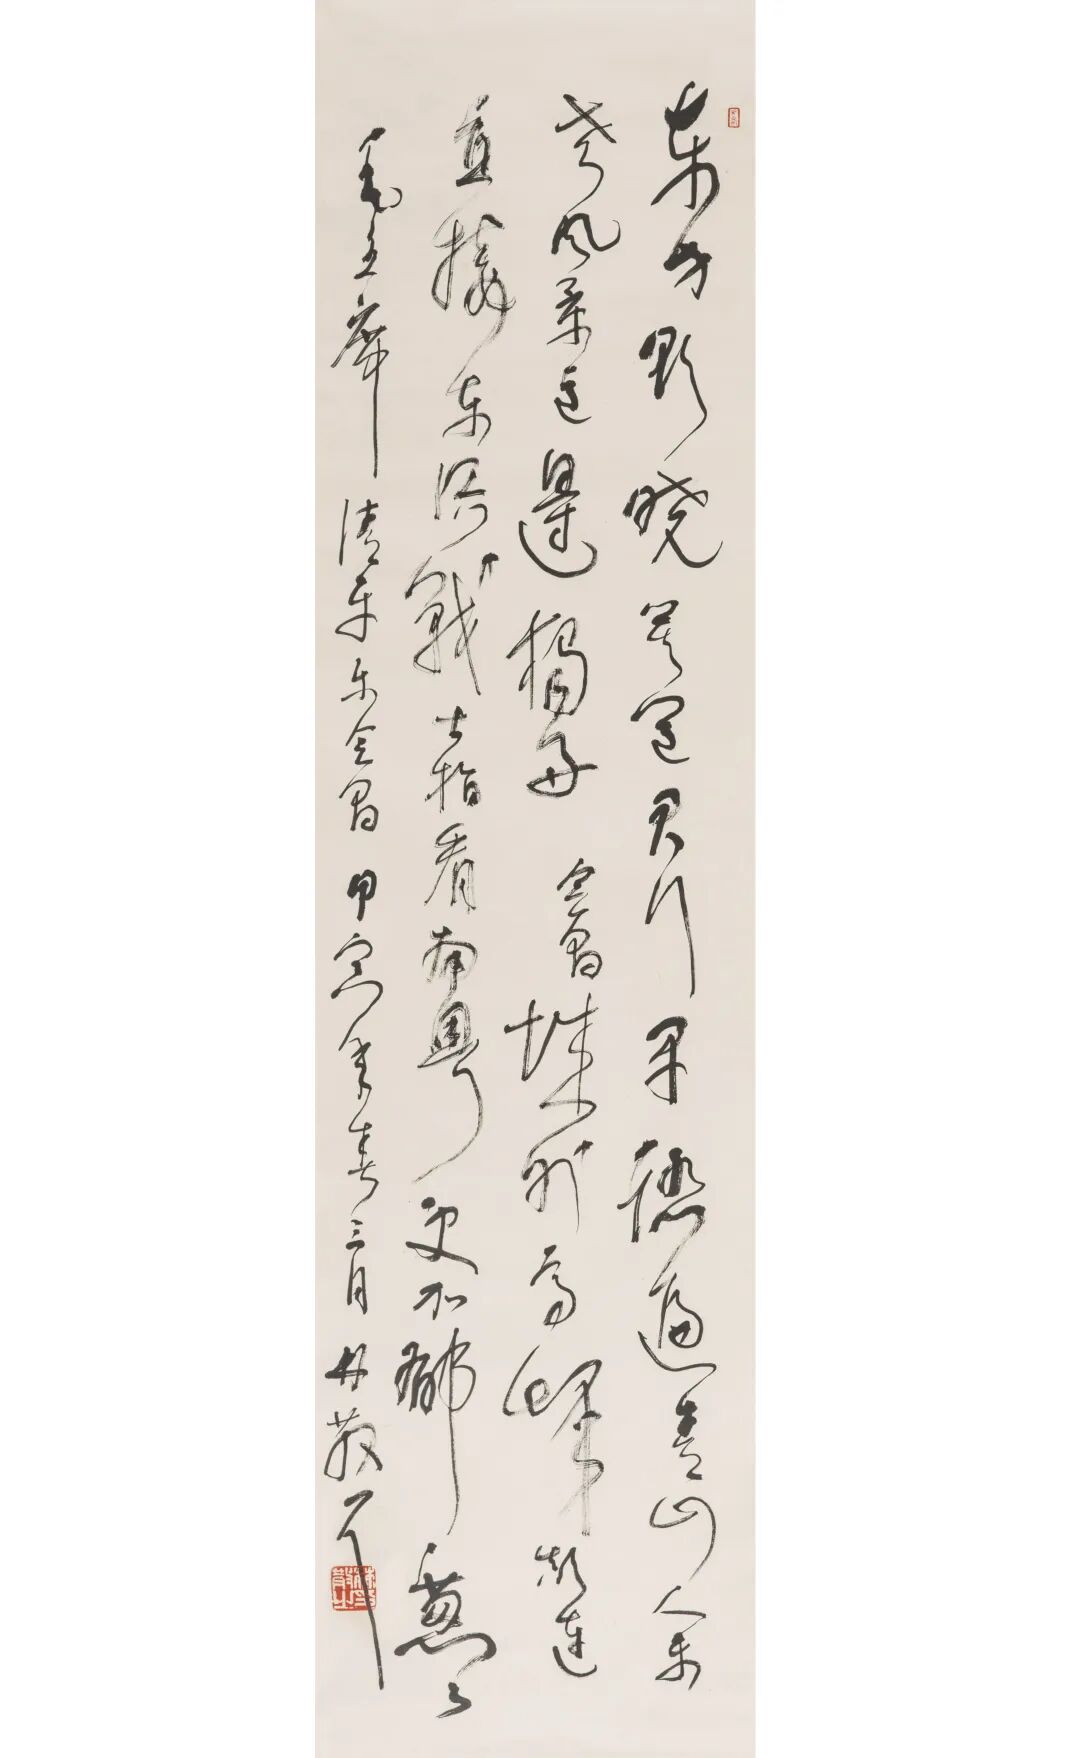 东方欲晓莫道君行早踏遍青山人未
老风景这邊獨好會昌城外高峰颠连
直接东溟戰士指看南粤更加郁葱々
毛主席清平乐会昌甲寅年春三月林散耳